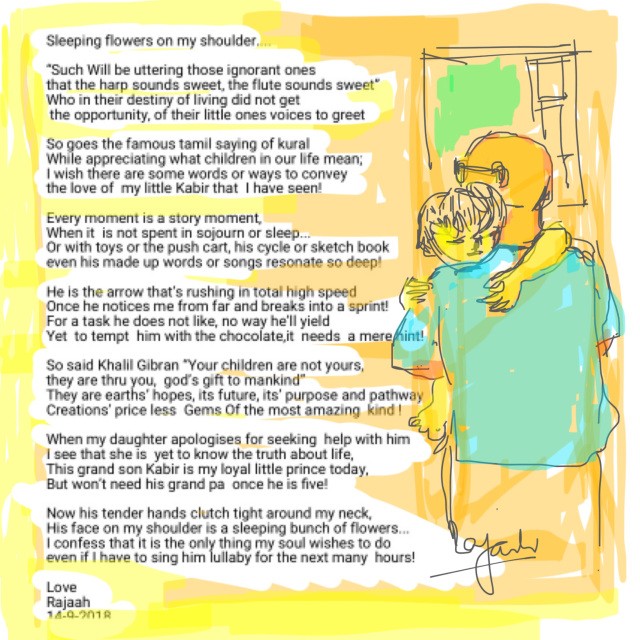 Sleeping flowers on my shoulder....
“Such Will be uttering those ignorant ones
that the harp sounds sweet, the flute sounds sweet”
Who in their destiny of living did not get
the opportunity, of their little ones voices to greet
So goes the famous tamil saying of kural
While appreciating what children in our life mean;
I wish there are some words or ways to convey
the love of my little Kabir that I have seen!
Every moment is a story moment,
When it is not spent in sojourn or sleep...
Or with toys or the push cart, his cycle or sketch book
even his made up words or songs resonate so deep!
He is the arrow that's rushing in total high speed
Once he notices me from far and breaks into a sprint!
For a task he does not like, no way he'll yield
Yet to tempt him with the chocolate,it needs a mere hint!
So said Khalil Gibran “Your children are not yours,
they are thru you, god's gift to mankind”
They are earths' hopes, its future, its' purpose and pathway
Creations' price less Gems Of the most amazing kind !
When my daughter apologises for seeking help with him
I see that she is yet to know the truth about life,
This grand son Kabir is my loyal little prince today,
But won't need his grand pa once he is five!
Now his tender hands clutch tight around my neck,
His face on my shoulder is a sleeping bunch of flowers...
I confess that it is the only thing my soul wishes to do
even if I have to sing him lullaby for the next many hours!
Love
Rajaah
14-9-2018